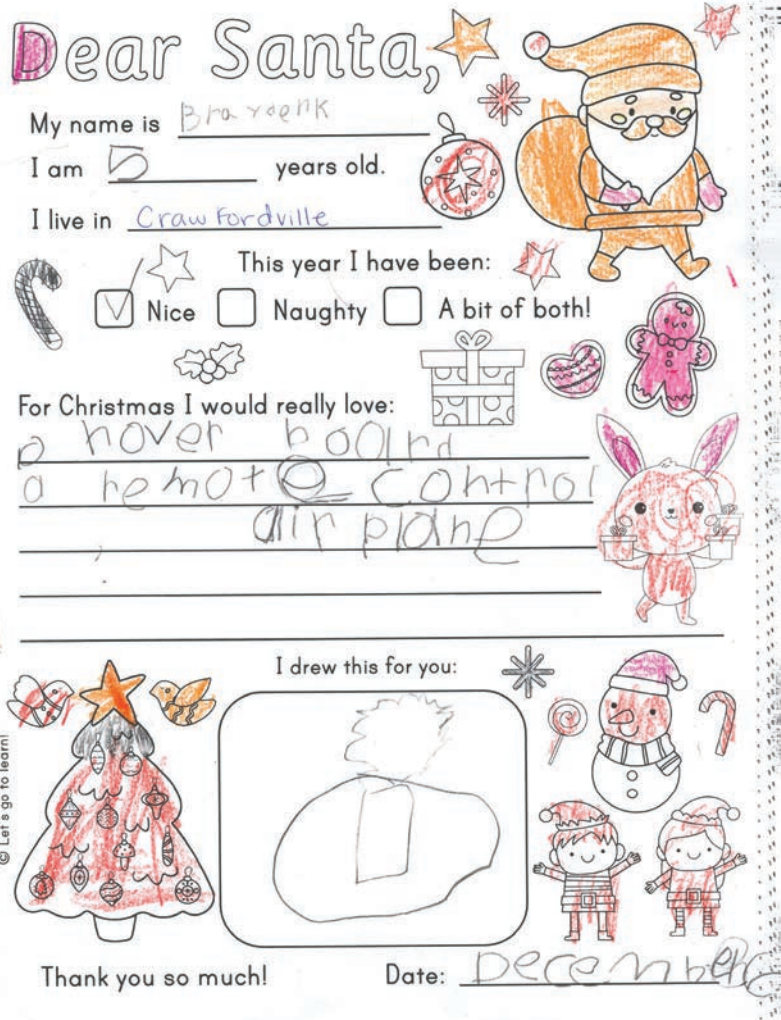 Dear Santa,
My name is Braydenk
I am 5 years old.
I live in Crawfordville
This year I have been:
Nice Naughty A bit of both!
For Christmas I would really love:
a hover board
a remote control
air plane
I drew this for you:
© Let's go to learn!
Thank you so much! Date: December